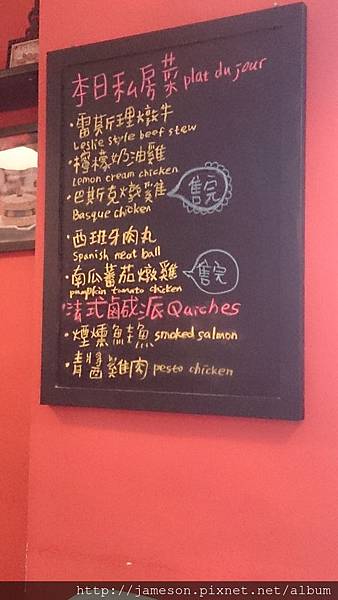 本日私房菜 plat du jour
・雷斯理燉牛
Leslie style beef stew
・檸檬奶油雞
Lemon cream chicken
・巴斯克燉雞 售完
Basque chicken
・西班牙肉丸
Spanish meat ball
・南瓜蕃茄燉雞 售完
pumpkin tomato chicken
法式鹹派 Quiches
・煙燻鮭魚 smoked salmon
・青醬雞肉 pesto chicken
http://jameson.pixnet.net/album